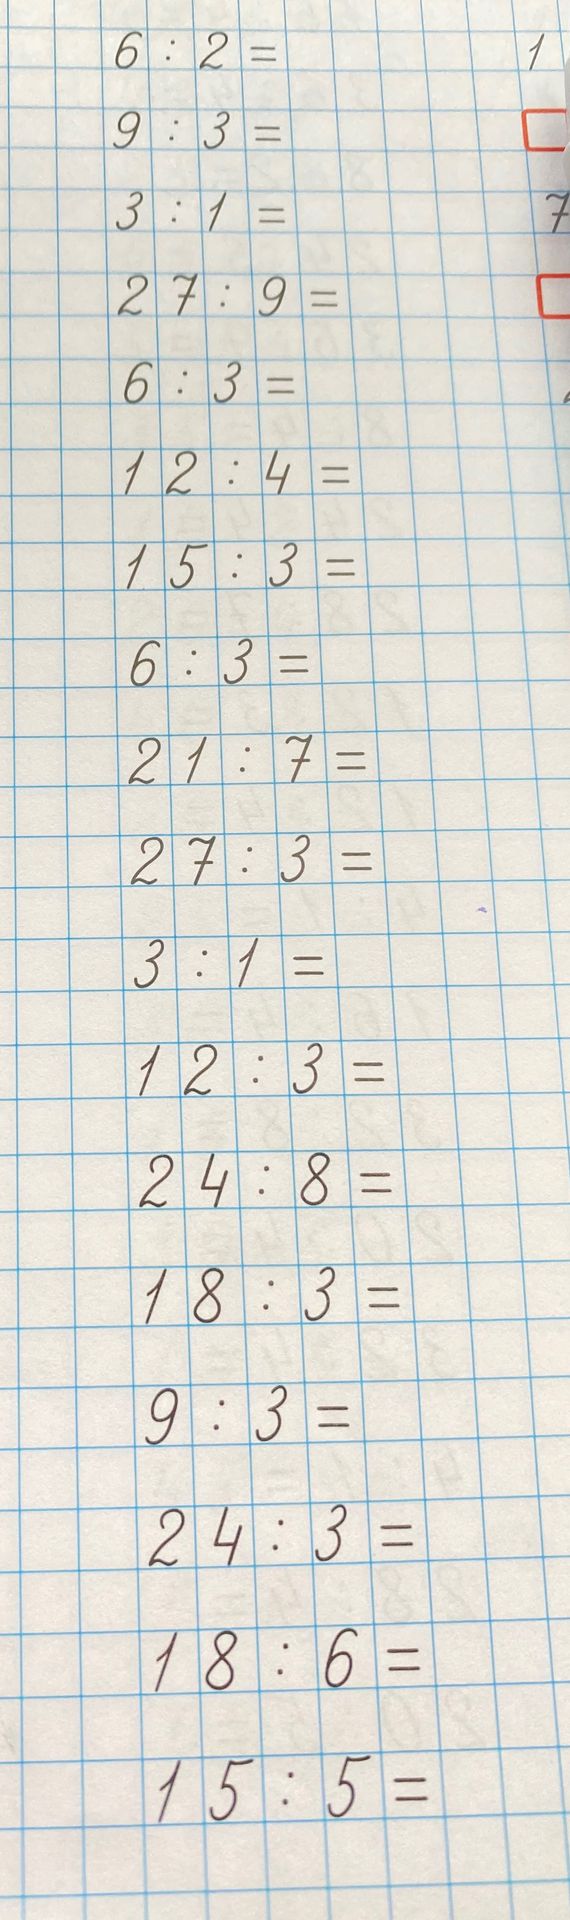 6 : 2 =
9 : 3 =
3 : 1 =
27 : 9 =
6 : 3 =
12 : 4 =
15 : 3 =
6 : 3 =
21 : 7 =
27 : 3 =
3 : 1 =
12 : 3 =
24 : 8 =
18 : 3 =
9 : 3 =
24 : 3 =
18 : 6 =
15 : 5 =
1
7